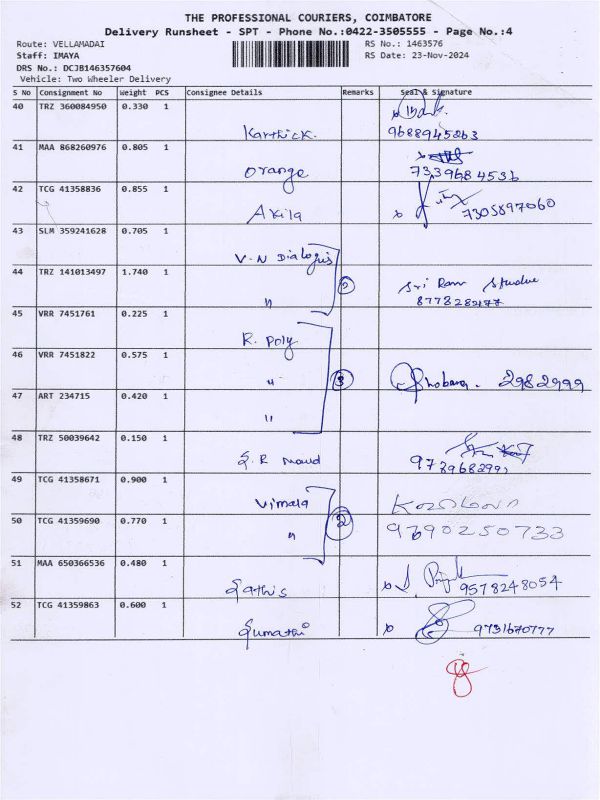 THE PROFESSIONAL COURIERS, COIMBATORE
Delivery Runsheet - SPT - Phone No.:0422-3505555 - Page No.:4
Route: VELLAMADAI RS No.: 1463576
Staff: IMAYA RS Date: 23-Nov-2024
DRS No.: DCJB146357604
Vehicle: Two Wheeler Delivery
S No Consignment No Weight PCS Consignee Details Remarks Seal & Signature
40 TRZ 360084950 0.330 1
Karthick. 9688945063
41 MAA 868260976 0.805 1
Orange 7339684536
42 TCG 41358836 0.855 1
Akila 7305897060
43 SLM 359241628 0.705 1
V.N Dialogis
44 TRZ 141013497 1.740 1
" 2 Sri Ram
45 VRR 7451761 0.225 1
R. Poly
46 VRR 7451822 0.575 1
" 3 Shobana. 2982999
47 ART 234715 0.420 1
"
48 TRZ 50039642 0.150 1
S.R
49 TCG 41358671 0.900 1
Vimala
50 TCG 41359690 0.770 1
" 2 9790250733
51 MAA 650366536 0.480 1
Sathis 9578248054
52 TCG 41359863 0.600 1
Sumathi 9731670777